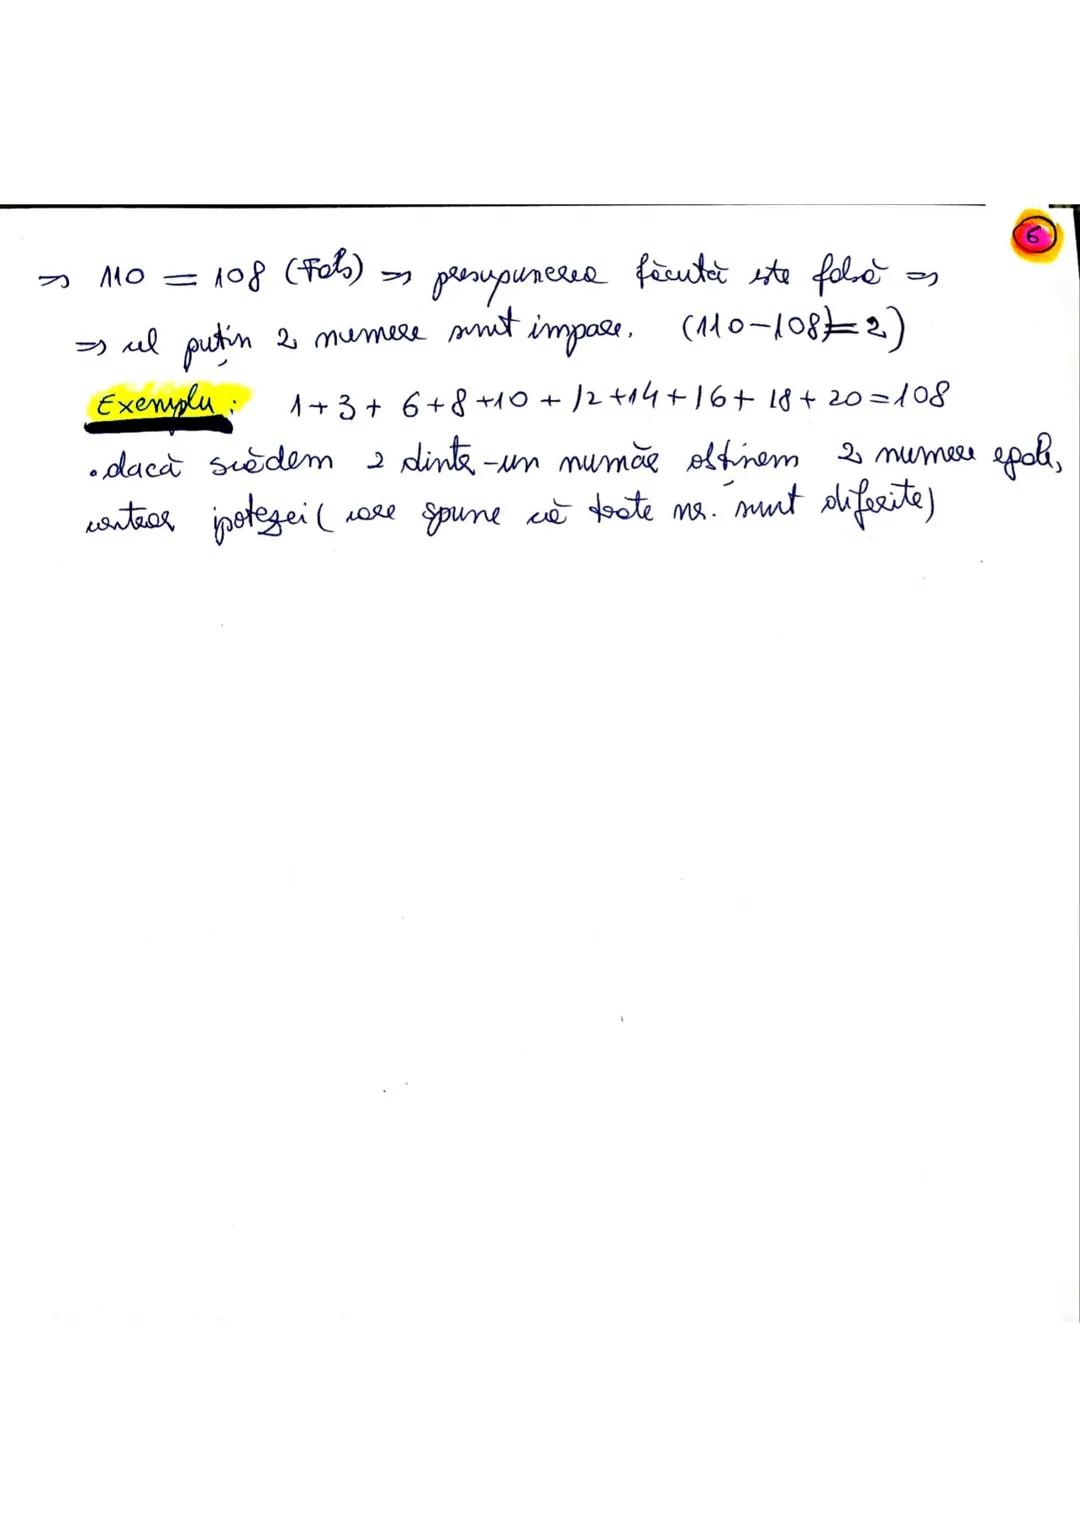 6
⇒ 110 = 108 (Fals) ⇒ presupunerea făcută este falsă ⇒
⇒ cel puțin 2 numere sunt impare. (110-108)=2)
Exemplu: 1+3+6+8+10+12+14+16+18+20=108
• dacă scădem 2 dintr-un număr obținem 2 numere egale,
contrar ipotezei (care spune că toate nr. sunt diferite)